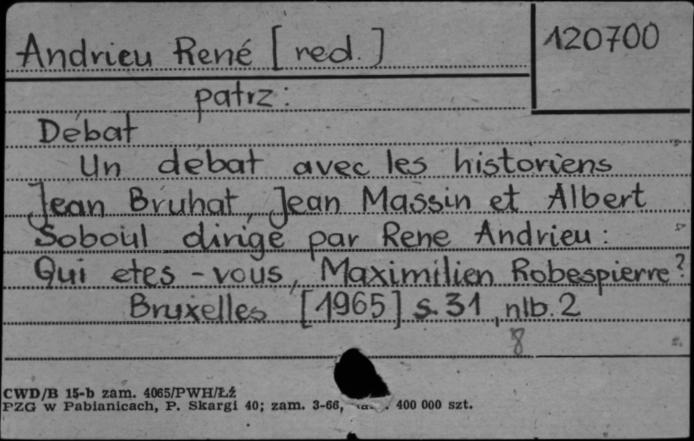 Andrieu René [red.]
120700
patrz:
Débat
Un débat avec les historiens
Jean Bruhat, Jean Massin et Albert
Soboul dirigé par Rene Andrieu:
Qui etes-vous, Maximilien Robespierre?
Bruxelles [1965] s. 31, nlb. 2
8
CWD/B 15-b zam. 4065/PWH/Łź
PZG w Pabianicach, P. Skargi 40; zam. 3-66, 400 000 szt.